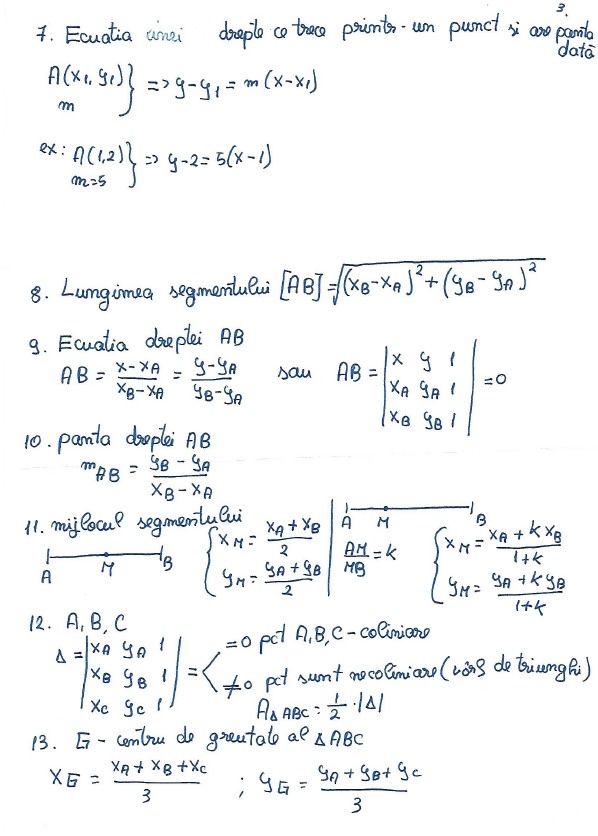 3.
7. Ecuatia unei drepte ce trece printr-un punct si are panta dată
A(x₁, y₁)
m } => y-y₁ = m(x-x₁)
ex: A(1,2)
m=5 } => y-2=5(x-1)
8. Lungimea segmentului [AB]=√((x_B-x_A)²+(y_B-y_A)²)
9. Ecuatia dreptei AB
AB = (x-x_A)/(x_B-x_A) = (y-y_A)/(y_B-y_A) sau AB = |x y 1|
|x_A y_A 1| =0
|x_B y_B 1|
10. panta dreptei AB
m_AB = (y_B - y_A)/(x_B - x_A)
11. mijlocul segmentului
A M B
{ x_M = (x_A + x_B)/2
y_M = (y_A + y_B)/2
A M B
AM/MB = k
{ x_M = (x_A + k x_B)/(1+k)
y_M = (y_A + k y_B)/(1+k)
12. A, B, C
Δ = |x_A y_A 1|
|x_B y_B 1| =
|x_C y_C 1|
=0 pct A,B,C - coliniare
≠0 pct sunt necoliniare (vârf de triunghi)
A_ΔABC = 1/2 · |Δ|
13. G - centru de greutate al ΔABC
x_G = (x_A + x_B + x_C)/3 ; y_G = (y_A + y_B + y_C)/3